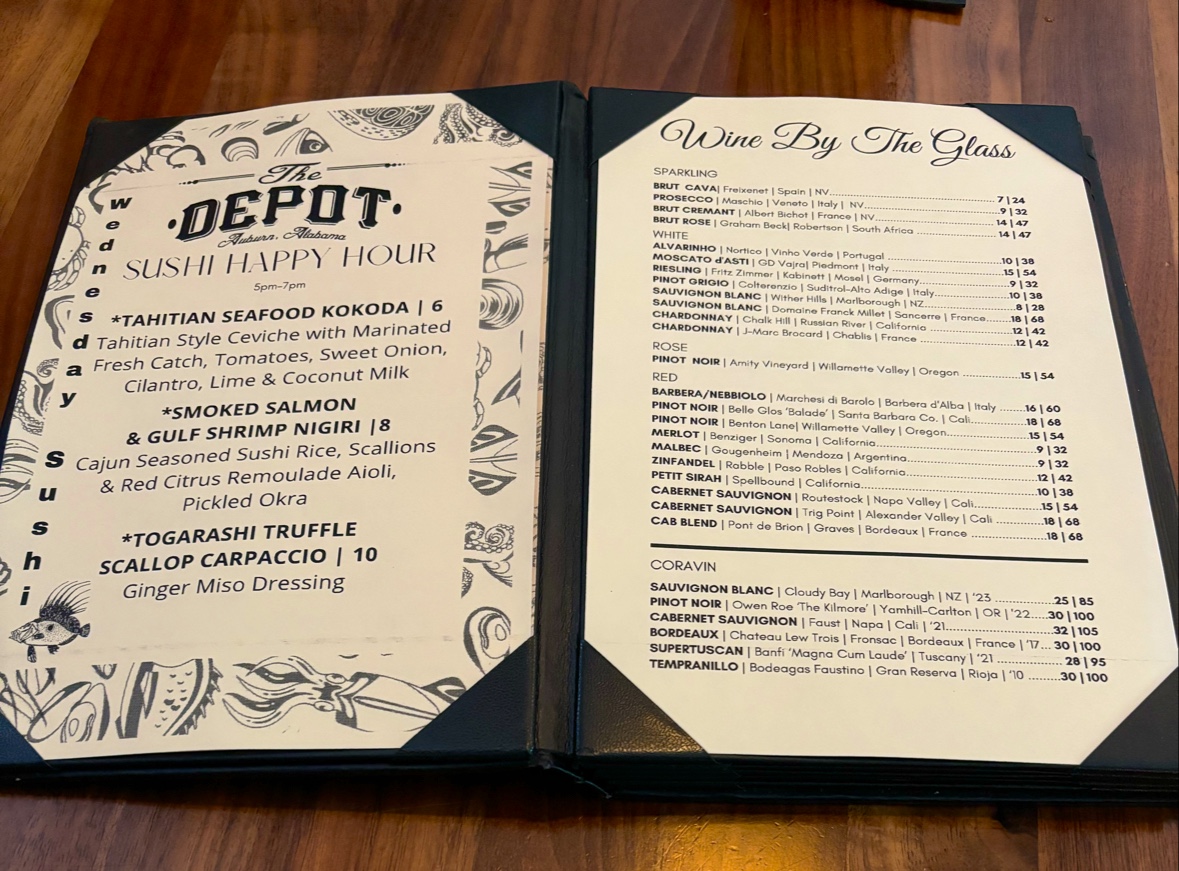 The
DEPOT
Auburn, Alabama
Wednesday Sushi
SUSHI HAPPY HOUR
5pm-7pm
*TAHITIAN SEAFOOD KOKODA | 6
Tahitian Style Ceviche with Marinated
Fresh Catch, Tomatoes, Sweet Onion,
Cilantro, Lime & Coconut Milk
*SMOKED SALMON
& GULF SHRIMP NIGIRI |8
Cajun Seasoned Sushi Rice, Scallions
& Red Citrus Remoulade Aioli,
Pickled Okra
*TOGARASHI TRUFFLE
SCALLOP CARPACCIO | 10
Ginger Miso Dressing
Wine By The Glass
SPARKLING
BRUT CAVA| Freixenet | Spain | NV 7|24
PROSECCO | Maschio | Veneto | Italy | NV 9|32
BRUT CREMANT | Albert Bichot | France | NV 14|47
BRUT ROSE | Graham Beck| Robertson | South Africa 14|47
WHITE
ALVARINHO | Nortico | Vinho Verde | Portugal 10|38
MOSCATO d'ASTI | GD Vajra| Piedmont | Italy 15|54
RIESLING | Fritz Zimmer | Kabinett | Mosel | Germany 9|32
PINOT GRIGIO | Colterenzio | Suditrol-Alto Adige | Italy 10|38
SAUVIGNON BLANC | Wither Hills | Marlborough | NZ 8|28
SAUVIGNON BLANC | Domaine Franck Millet | Sancerre | France 18|68
CHARDONNAY | Chalk Hill | Russian River | California 12|42
CHARDONNAY | J-Marc Brocard | Chablis | France 12|42
ROSE
PINOT NOIR | Amity Vineyard | Willamette Valley | Oregon 15|54
RED
BARBERA/NEBBIOLO | Marchesi di Barolo | Barbera d'Alba | Italy 16|60
PINOT NOIR | Belle Glos 'Balade' | Santa Barbara Co. | Cali 18|68
PINOT NOIR | Benton Lane| Willamette Valley | Oregon 15|54
MERLOT | Benziger | Sonoma | California 9|32
MALBEC | Gougenheim | Mendoza | Argentina 9|32
ZINFANDEL | Rabble | Paso Robles | California 12|42
PETIT SIRAH | Spellbound | California 10|38
CABERNET SAUVIGNON | Routestock | Napa Valley | Cali 15|54
CABERNET SAUVIGNON | Trig Point | Alexander Valley | Cali 18|68
CAB BLEND | Pont de Brion | Graves | Bordeaux | France 18|68
CORAVIN
SAUVIGNON BLANC | Cloudy Bay | Marlborough | NZ | '23 25|85
PINOT NOIR | Owen Roe 'The Kilmore' | Yamhill-Carlton | OR | '22 30|100
CABERNET SAUVIGNON | Faust | Napa | Cali | '21 32|105
BORDEAUX | Chateau Lew Trois | Fronsac | Bordeaux | France | '17 30|100
SUPERTUSCAN | Banfi 'Magna Cum Laude' | Tuscany | '21 28|95
TEMPRANILLO | Bodeagas Faustino | Gran Reserva | Rioja | '10 30|100